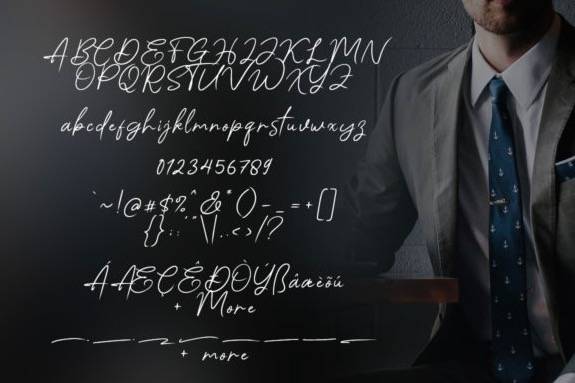 ABCDEFGHIJKLMN
OPQRSTUVWXYZ
abcdefghijklmnopqrstuvwxyz
0123456789
`~!@#$%^&*()-_=+[]
{}:;"'\|,.<>/?
ÁÆÇÊÐÒÝßâæèõú
+ More
+ more